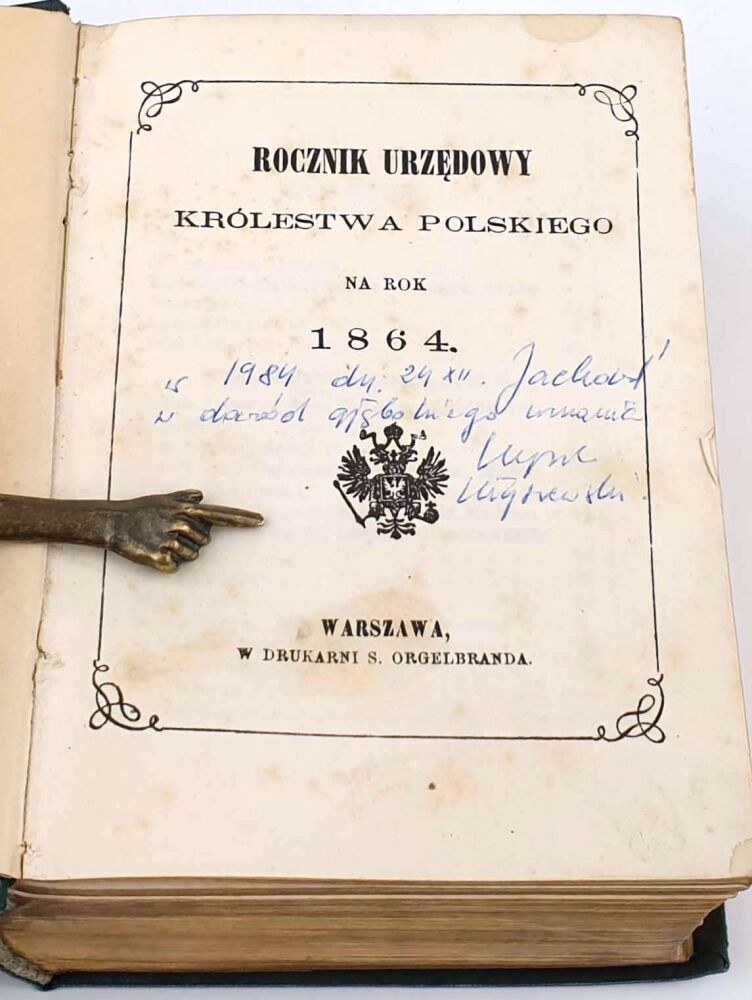 ROCZNIK URZĘDOWY
KRÓLESTWA POLSKIEGO
NA ROK
1864.
w 1984 dn. 24 XII.
w dowód głębokiego uznania
WARSZAWA,
W DRUKARNI S. ORGELBRANDA.